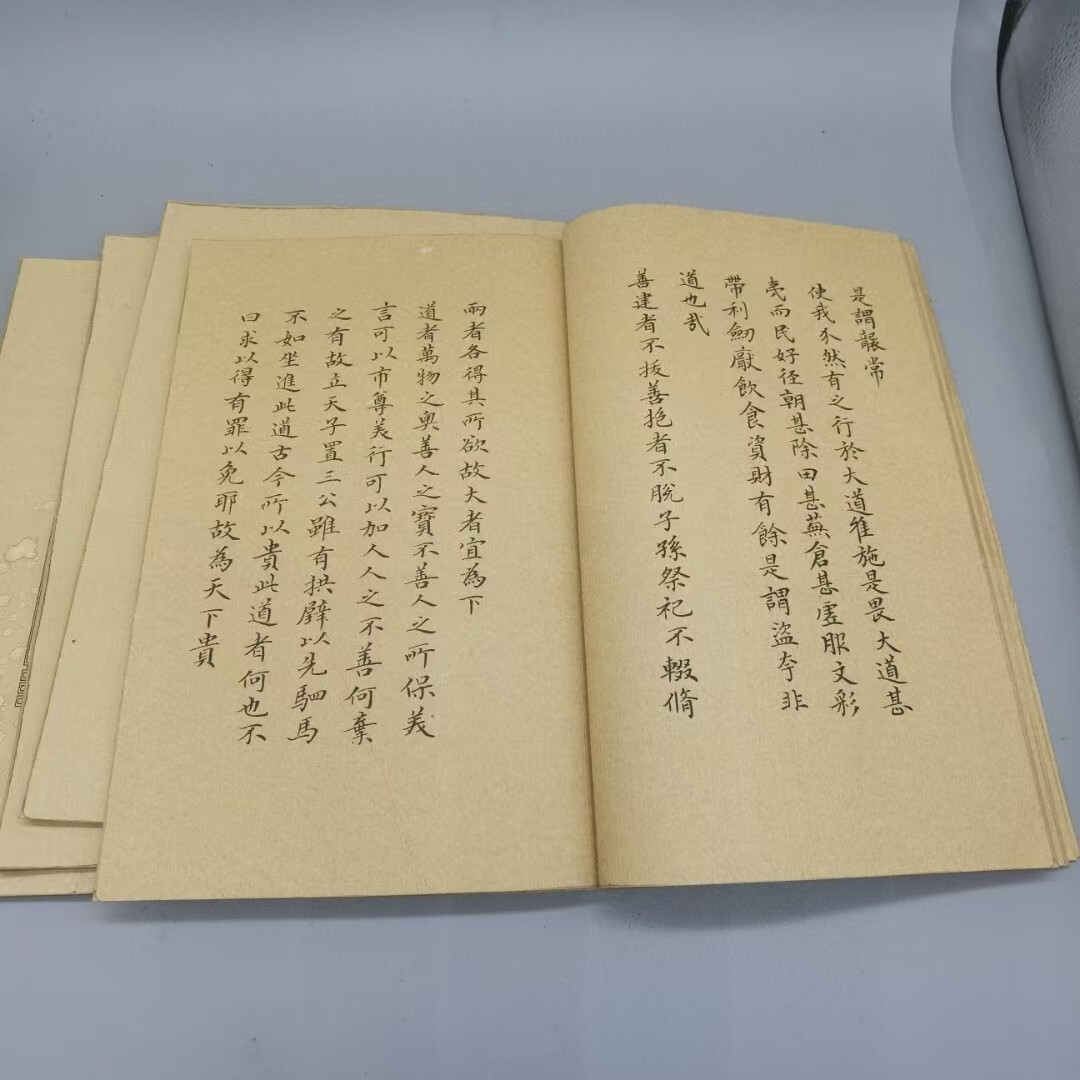 是謂襲常
使我介然有之行於大道惟施是畏大道甚
夷而民好径朝甚除田甚蕪倉甚虛服文彩
帶利劒厭飲食資財有餘是謂盜夸非
道也哉
善建者不拔善抱者不脫子孫祭祀不輟脩
兩者各得其所欲故大者宜為下
道者萬物之奧善人之寶不善人之所保美
言可以市尊美行可以加人人之不善何棄
之有故立天子置三公雖有拱璧以先駟馬
不如坐進此道古今所以貴此道者何也不
曰求以得有罪以免耶故為天下貴